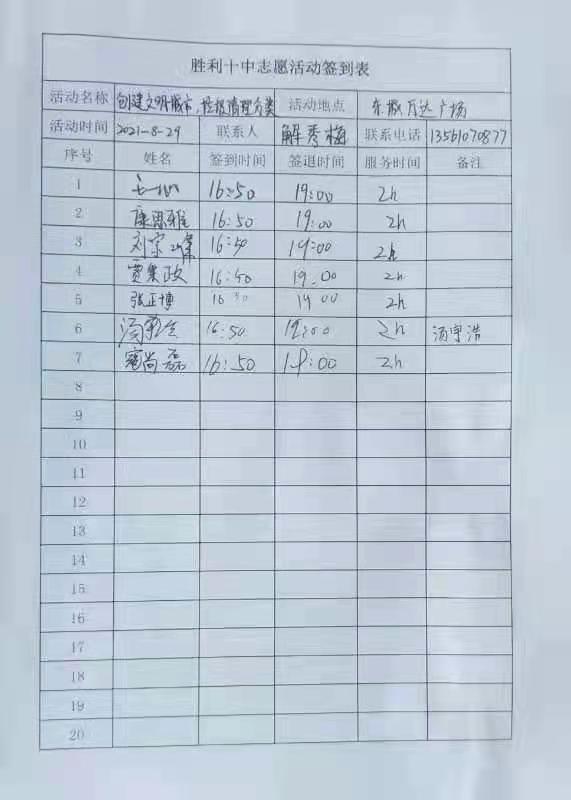 胜利十中志愿活动签到表
活动名称 创建文明城市,垃圾清理分类 活动地点 东城万达广场
活动时间 2021-8-29 联系人 解秀梅 联系电话 13561070877
序号 姓名 签到时间 签退时间 服务时间 备注
1 16:50 19:00 2h
2 康思雅 16:50 19:00 2h
3 刘宗 16:50 19:00 2h
4 贾集政 16:50 19:00 2h
5 张正博 16 50 19 00 2h
6 汤 16:50 19:00 2h 汤宇浩
7 尚磊 16:50 19:00 2h
8
9
10
11
12
13
14
15
16
17
18
19
20